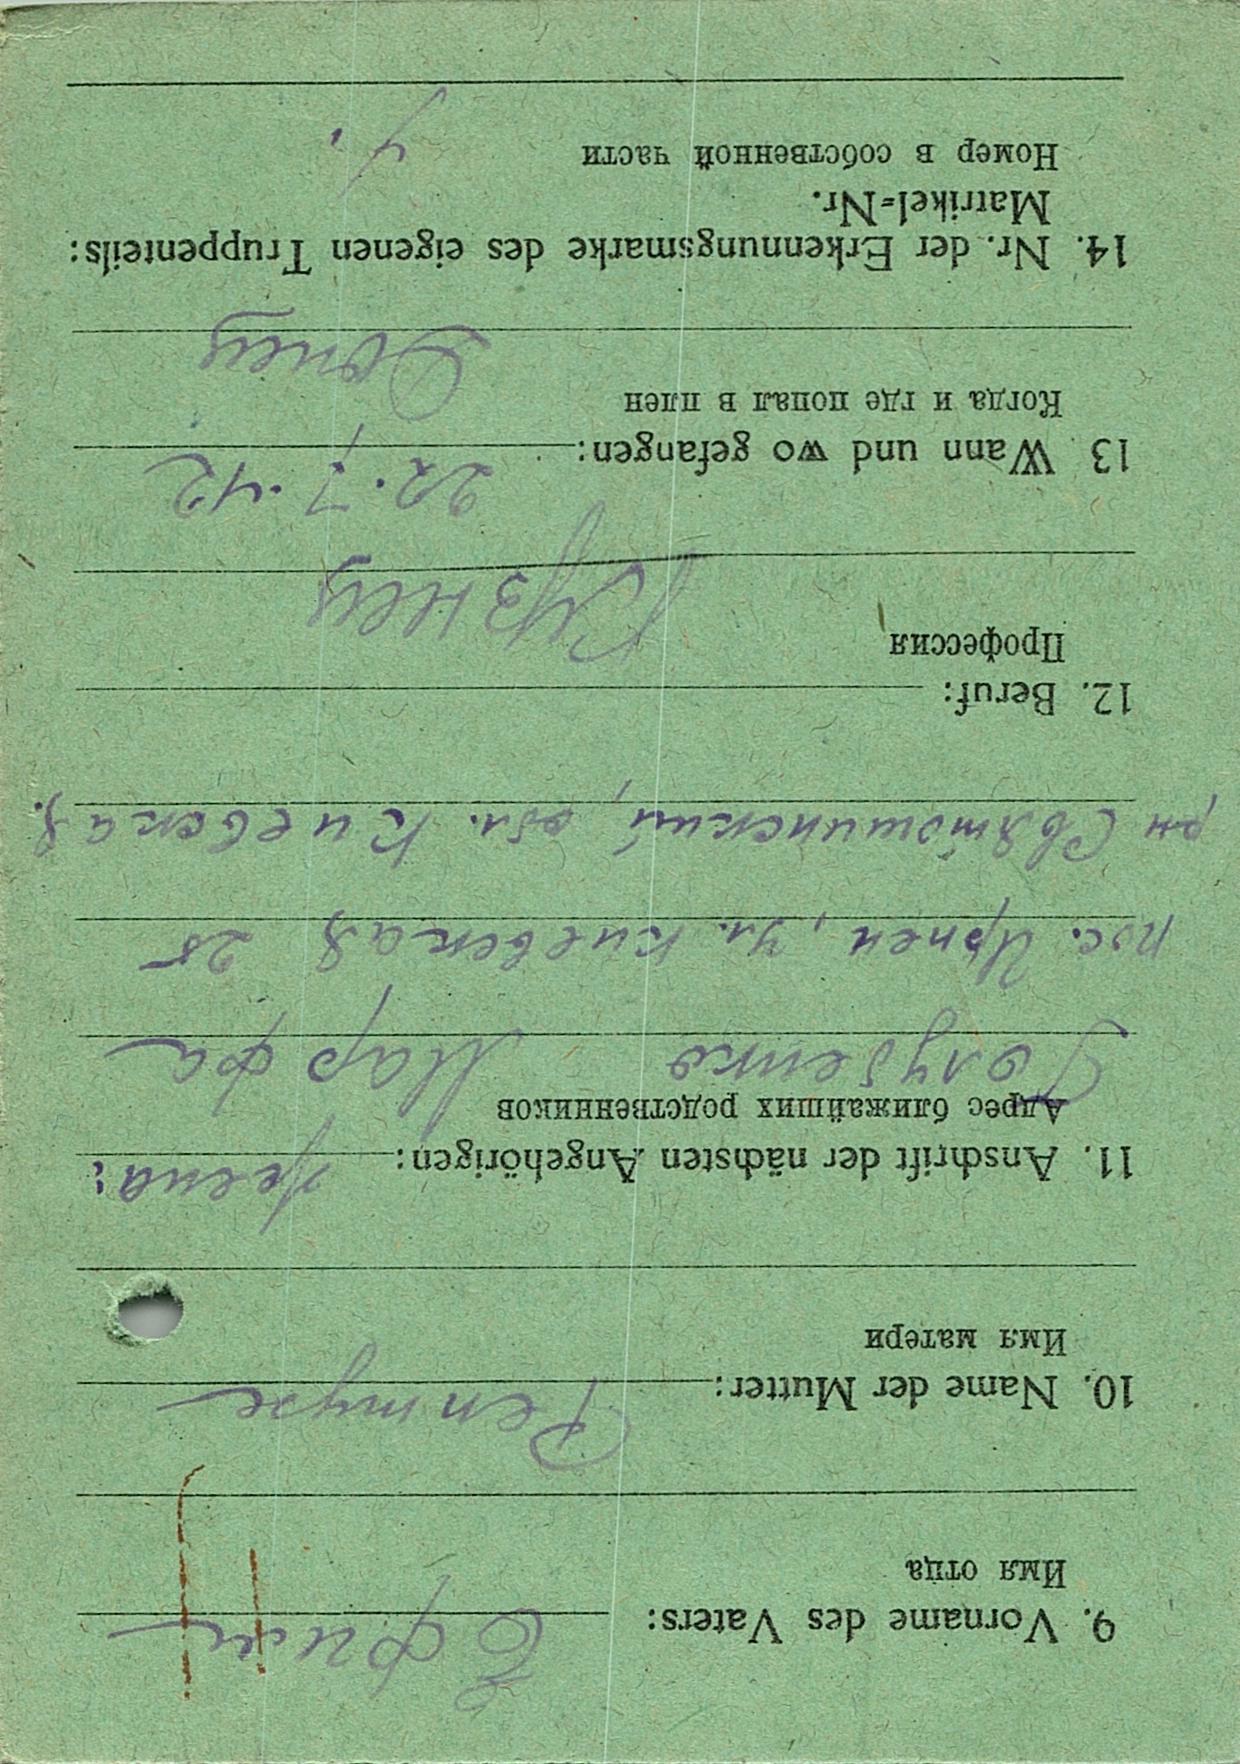 9. Vorname des Vaters: Ефим
Имя отца
10. Name der Mutter:
Имя матери
11. Anschrift der nächsten Angehörigen: жена:
Адрес ближайших родственников
Голубенко Марфа
пос. Ирпен, ул. Киевская 25
рн Святошинский, обл. Киевская.
12. Beruf:
Профессия
Кузнец
13 Wann und wo gefangen: 22.7.42
Когда и где попал в плен
Донец
14. Nr. der Erkennungsmarke des eigenen Truppenteils:
Matrikel-Nr.
Номер в собственной части